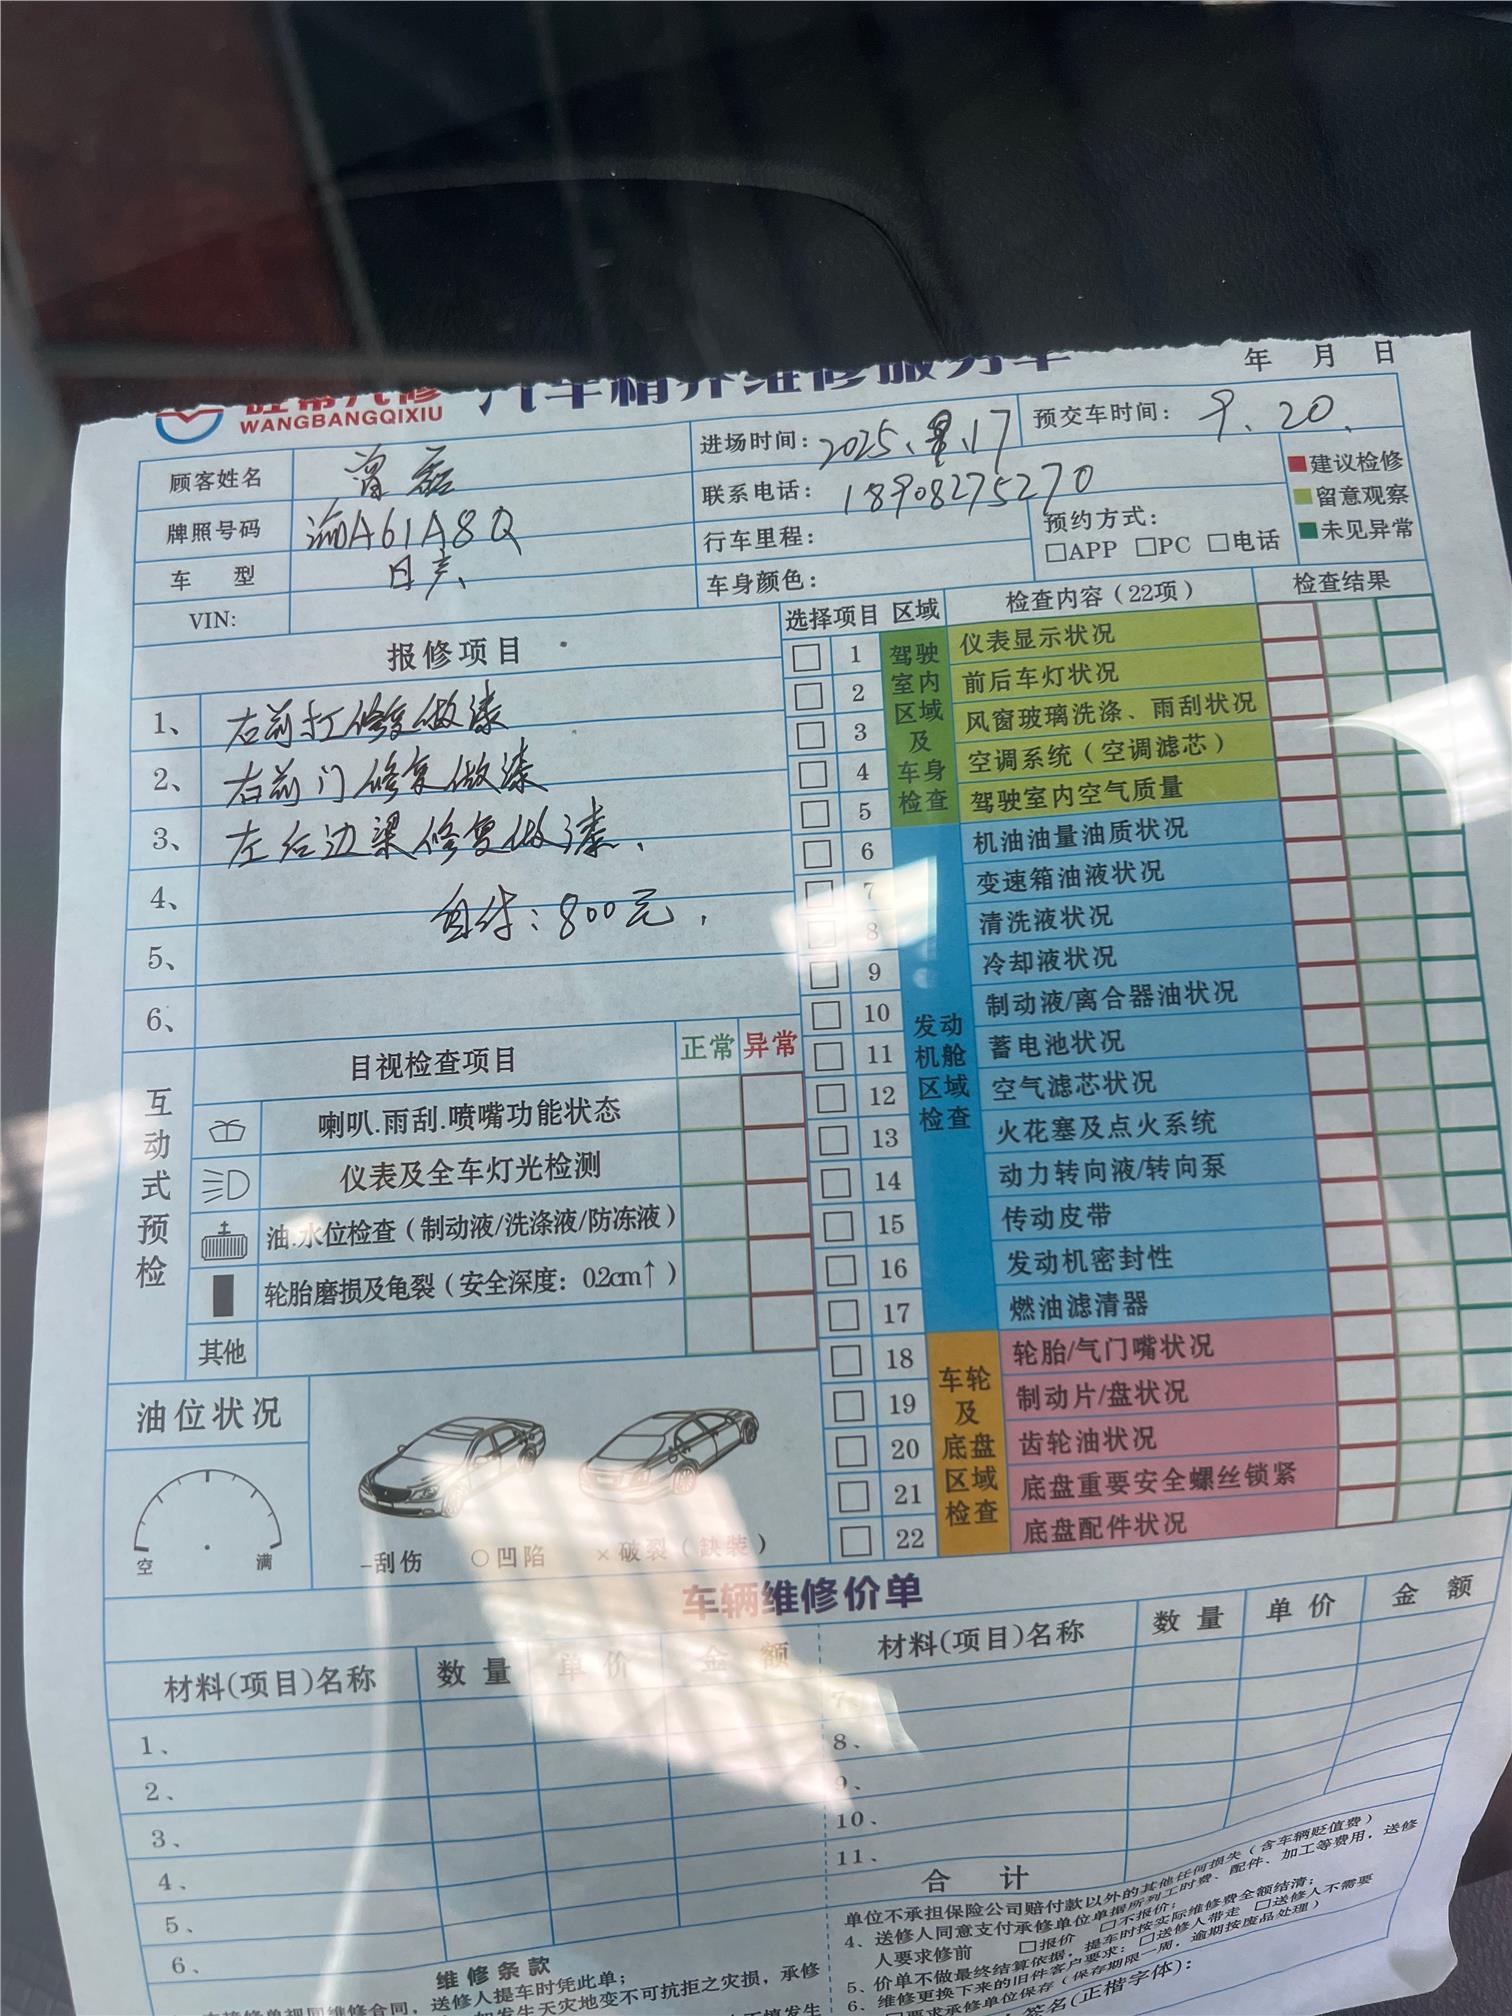 旺邦汽修 汽车精养维修服务单
WANGBANGQIXIU
年 月 日
顾客姓名 曾磊
进场时间: 2025、9、17
预交车时间: 9、20、
牌照号码 渝A61A8Q
联系电话: 18908275270
车 型 日产、
行车里程:
预约方式:
□APP □PC □电话
建议检修
留意观察
未见异常
VIN:
车身颜色:
报修项目
1、右前杠修复做漆
2、右前门修复做漆
3、左后边梁修复做漆、
4、自付:800元,
5、
6、
选择项目 区域 检查内容(22项) 检查结果
驾驶室内区域及车身检查
1 仪表显示状况
2 前后车灯状况
3 风窗玻璃洗涤、雨刮状况
4 空调系统(空调滤芯)
5 驾驶室内空气质量
发动机舱区域检查
6 机油油量油质状况
7 变速箱油液状况
8 清洗液状况
9 冷却液状况
10 制动液/离合器油状况
11 蓄电池状况
12 空气滤芯状况
13 火花塞及点火系统
14 动力转向液/转向泵
15 传动皮带
16 发动机密封性
17 燃油滤清器
车轮及底盘区域检查
18 轮胎/气门嘴状况
19 制动片/盘状况
20 齿轮油状况
21 底盘重要安全螺丝锁紧
22 底盘配件状况
互动式预检
目视检查项目 正常 异常
喇叭.雨刮.喷嘴功能状态
仪表及全车灯光检测
油.水位检查(制动液/洗涤液/防冻液)
轮胎磨损及龟裂(安全深度: 0.2cm↑)
其他
油位状况
空 满
-刮伤 ○凹陷 ×破裂(缺装)
车辆维修价单
材料(项目)名称 数量 单价 金额
材料(项目)名称 数量 单价 金额
1、
2、
3、
4、
5、
6、
7、
8、
9、
10、
11、
合 计
维修条款
送修人提车时凭此单;
如发生天灾地变不可抗拒之灾损,承修
单位不承担保险公司赔付款以外的其他任何损失(含车辆贬值费)
4、送修人同意支付承修单位单据所列工时费、配件、加工等费用,送修
人要求修前 □报价 □不报价;
5、价单不做最终结算依据,提车时按实际维修费全额结清;
6、维修更换下来的旧件客户要求:□送修人带走 □送修人不需要
□要求承修单位保存(保存期限一周,逾期按废品处理)
签名(正楷字体):